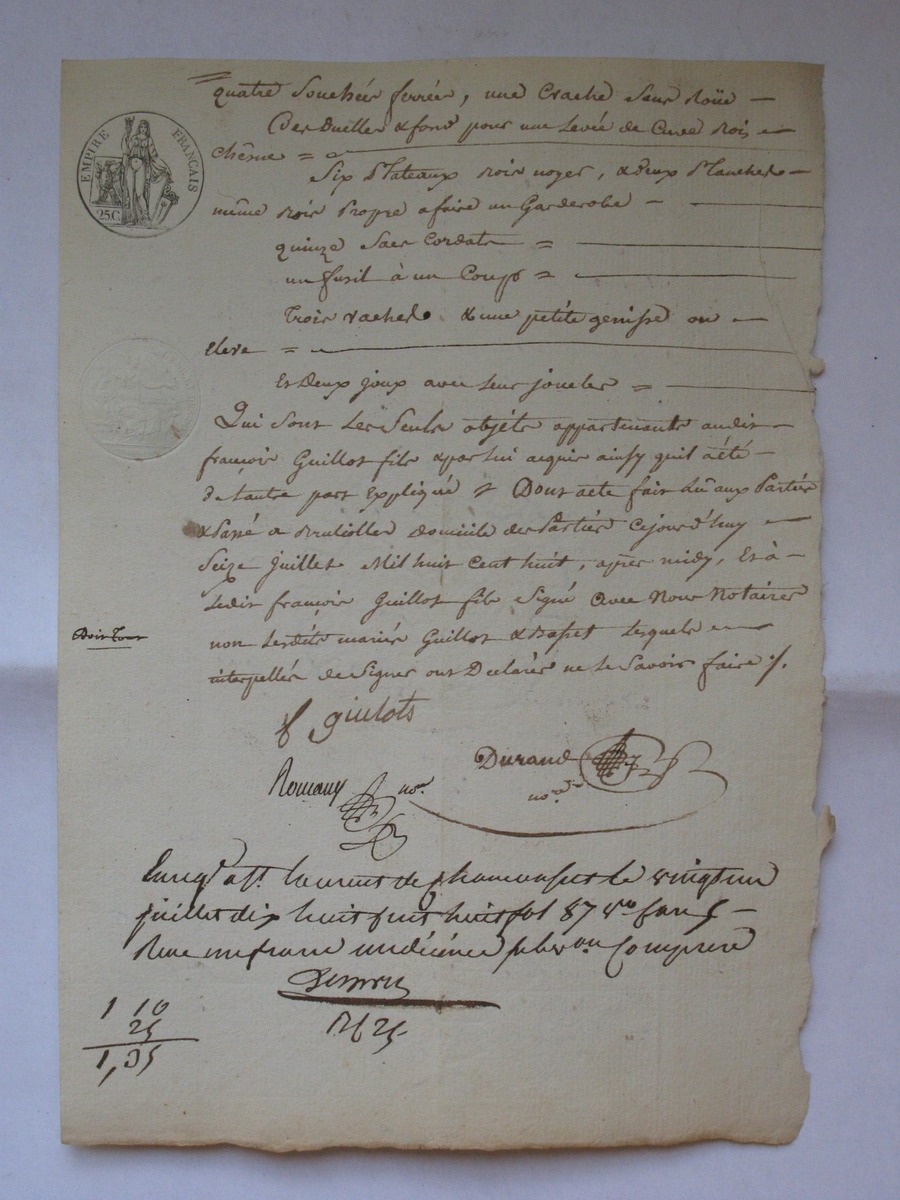 EMPIRE FRANÇAIS
25C.
quatre souchées ferrées, une Crache sans Roüe —
Des duilles & fond pour une Levée de Cuve Bois —
chêsne =
Six Plateaux bois noyer, & deux Planches —
même bois Propre a faire un Garderobe —
quinze sacs Cordats =
un fusil à un Coup =
Trois vaches & une petite genisse ou —
Eleve =
Et Deux joux avec Leur jouclet =
Qui sont Les Seuls objéts appartenants audit —
françois Guillot fils & par lui acquis ainsy quil a été —
de Lautre part Expliqué Dont acte fait Lû aux Parties
& Passé a domicile des Parties Cejourd'huy —
Seize juillet Mil huit Cent huit, après midy, Et à —
Ledit françois Guillot fils Signé avec Nous Notaires
non Lesdits mariés Guillot & Lesquels —
interpellés de Signer ont Declarés ne le Savoir faire ·/.
Bois Tour
f giulots
Durand
nore
Romany nore
Enreg.é a St. Laurent de chamousset le vingt un
juillet dix huit cent huit fol 87 vo
Reçu un franc un décime subvon Comprise
Rf 25
1 10
25
1,35